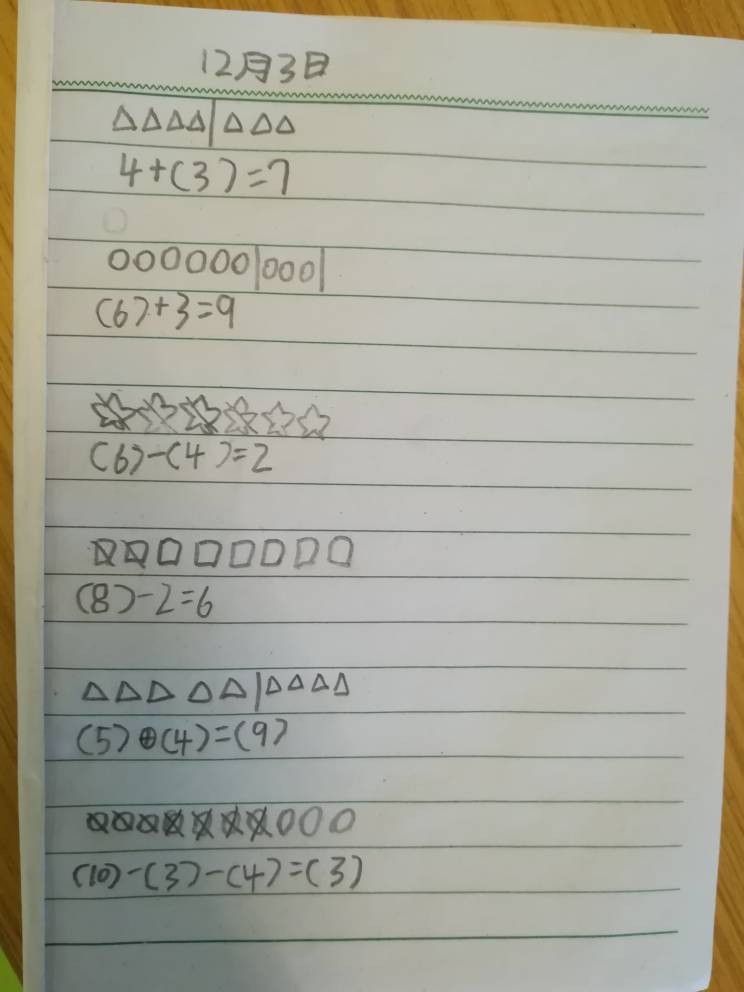 12月3日
4+(3)=7
(6)+3=9
(6)-(4)=2
(8)-2=6
(5)⊕(4)=(9)
(10)-(3)-(4)=(3)